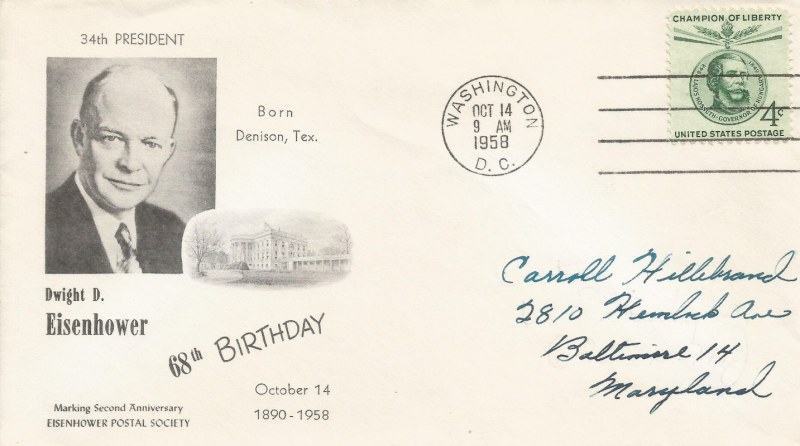 34th PRESIDENT
Born
Denison, Tex.
Dwight D.
Eisenhower
68th BIRTHDAY
October 14
1890-1958
Marking Second Anniversary
EISENHOWER POSTAL SOCIETY
WASHINGTON
OCT 14
9 AM
1958
D. C.
CHAMPION OF LIBERTY
LAJOS KOSSUTH-GOVERNOR OF HUNGARY
4¢
UNITED STATES POSTAGE
Carroll Hillebrand
2810 Hemlock Ave
Baltimore 14
Maryland